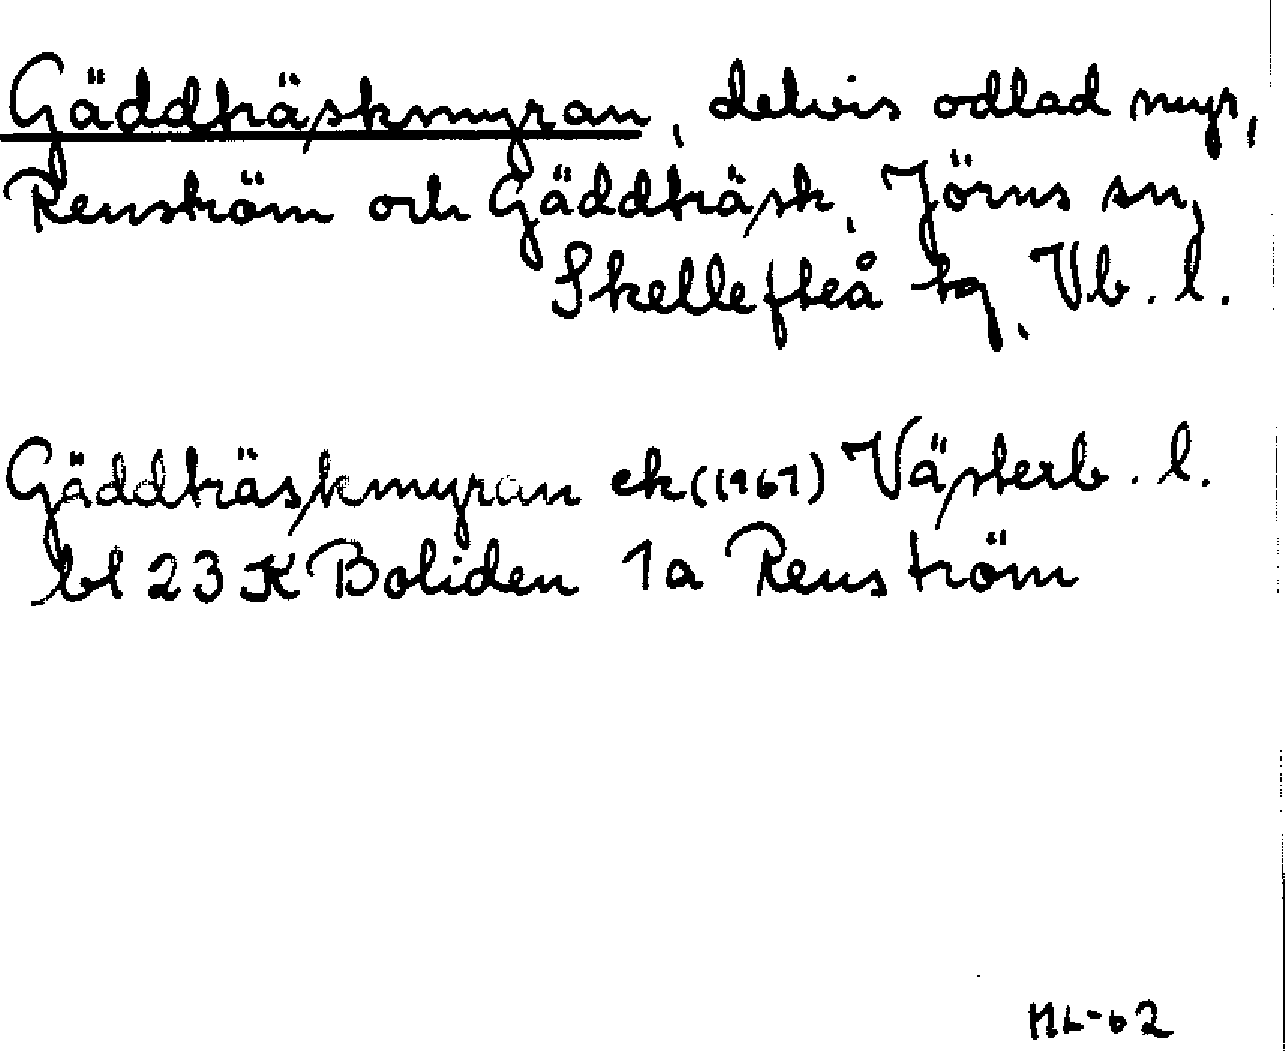 Gäddträskmyran, delvis odlad myr,
Renström och Gäddträsk, Jörns sn,
Skellefteå tg, Vb. l.
Gäddträskmyran ek (1961) Västerb. l.
bl 23 K Boliden 1a Renström
ML-62